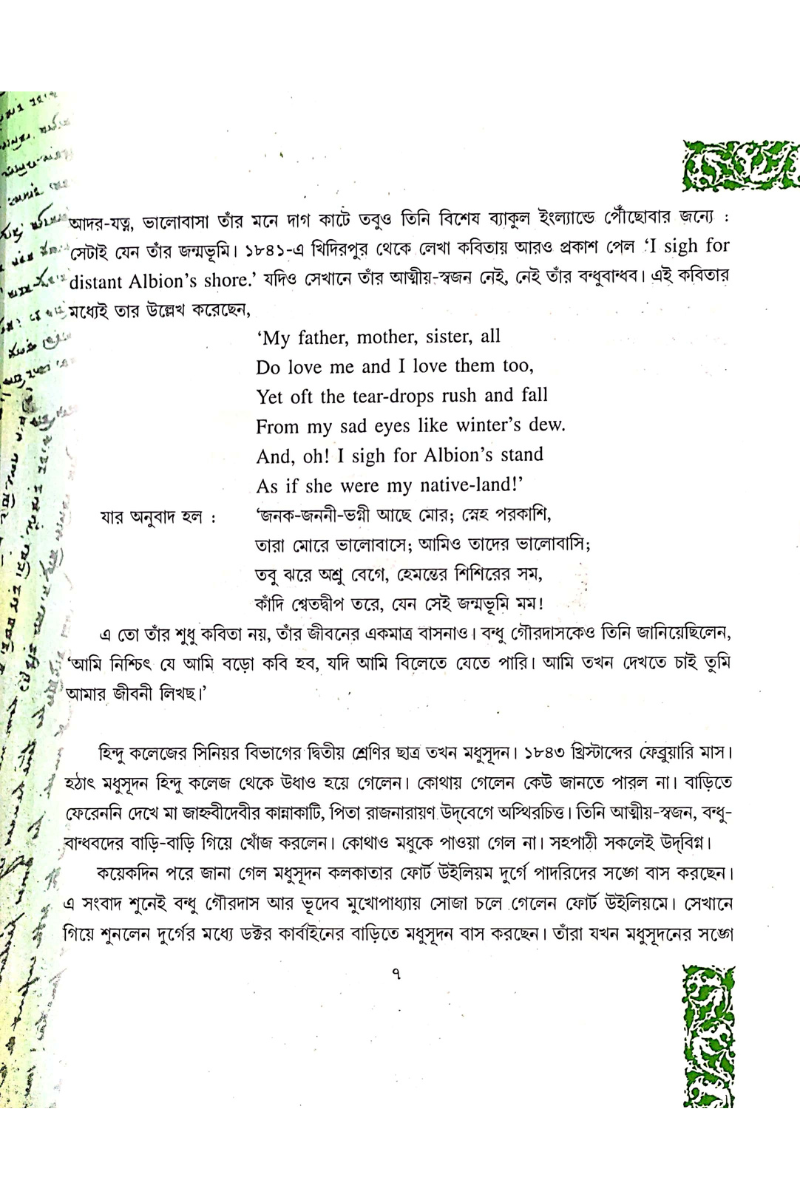 আদর-যত্ন, ভালোবাসা তাঁর মনে দাগ কাটে তবুও তিনি বিশেষ ব্যাকুল ইংল্যান্ডে পৌঁছোবার জন্যে :
সেটাই যেন তাঁর জন্মভূমি। ১৮৪১-এ খিদিরপুর থেকে লেখা কবিতায় আরও প্রকাশ পেল ‘I sigh for
distant Albion’s shore.’ যদিও সেখানে তাঁর আত্মীয়-স্বজন নেই, নেই তাঁর বন্ধুবান্ধব। এই কবিতার
মধ্যেই তার উল্লেখ করেছেন,
‘My father, mother, sister, all
Do love me and I love them too,
Yet oft the tear-drops rush and fall
From my sad eyes like winter’s dew.
And, oh! I sigh for Albion’s stand
As if she were my native-land!’
যার অনুবাদ হল : ‘জনক-জননী-ভগ্নী আছে মোর; স্নেহ পরকাশি,
তারা মোরে ভালোবাসে; আমিও তাদের ভালোবাসি;
তবু ঝরে অশ্রু বেগে, হেমন্তের শিশিরের সম,
কাঁদি শ্বেতদ্বীপ তরে, যেন সেই জন্মভূমি মম!
এ তো তাঁর শুধু কবিতা নয়, তাঁর জীবনের একমাত্র বাসনাও। বন্ধু গৌরদাসকেও তিনি জানিয়েছিলেন,
‘আমি নিশ্চিৎ যে আমি বড়ো কবি হব, যদি আমি বিলেতে যেতে পারি। আমি তখন দেখতে চাই তুমি
আমার জীবনী লিখছ।’
হিন্দু কলেজের সিনিয়র বিভাগের দ্বিতীয় শ্রেণির ছাত্র তখন মধুসূদন। ১৮৪৩ খ্রিস্টাব্দের ফেব্রুয়ারি মাস।
হঠাৎ মধুসূদন হিন্দু কলেজ থেকে উধাও হয়ে গেলেন। কোথায় গেলেন কেউ জানতে পারল না। বাড়িতে
ফেরেননি দেখে মা জাহ্নবীদেবীর কান্নাকাটি, পিতা রাজনারায়ণ উদ্‌বেগে অস্থিরচিত্ত। তিনি আত্মীয়-স্বজন, বন্ধু-
বান্ধবদের বাড়ি-বাড়ি গিয়ে খোঁজ করলেন। কোথাও মধুকে পাওয়া গেল না। সহপাঠী সকলেই উদ্‌বিগ্ন।
কয়েকদিন পরে জানা গেল মধুসূদন কলকাতার ফোর্ট উইলিয়ম দুর্গে পাদরিদের সঙ্গে বাস করছেন।
এ সংবাদ শুনেই বন্ধু গৌরদাস আর ভূদেব মুখোপাধ্যায় সোজা চলে গেলেন ফোর্ট উইলিয়মে। সেখানে
গিয়ে শুনলেন দুর্গের মধ্যে ডক্টর কার্বাইনের বাড়িতে মধুসূদন বাস করছেন। তাঁরা যখন মধুসূদনের সঙ্গে
৭